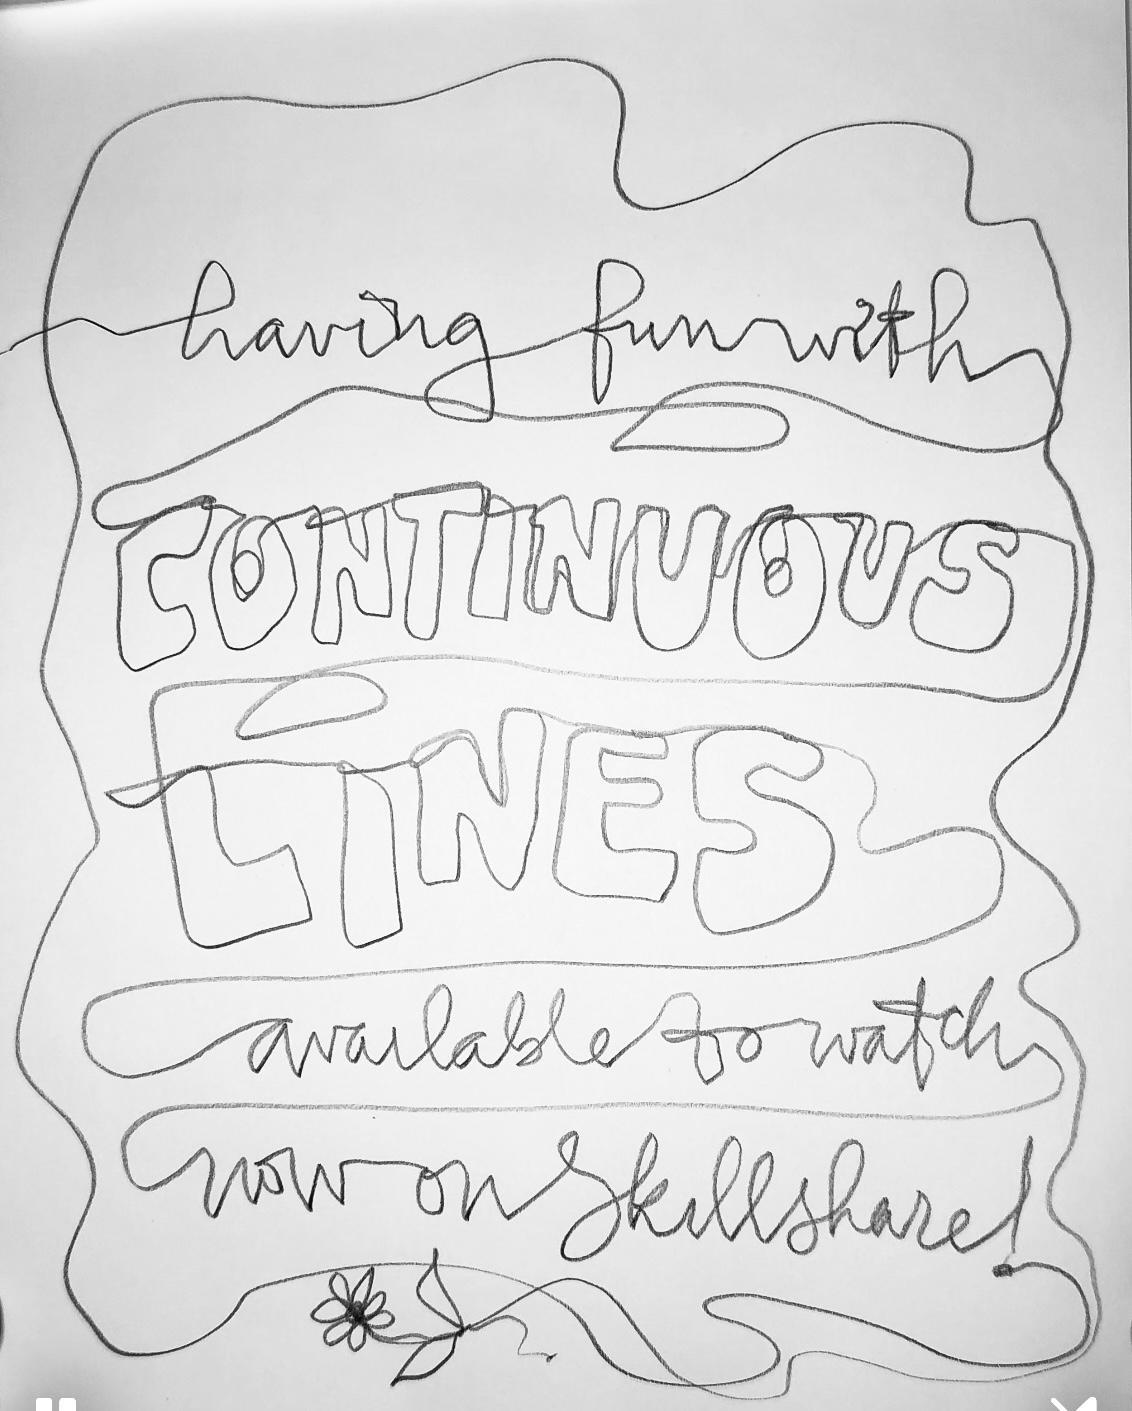 having fun with
CONTINUOUS
LiNES
available to watch
now on Skillshare!